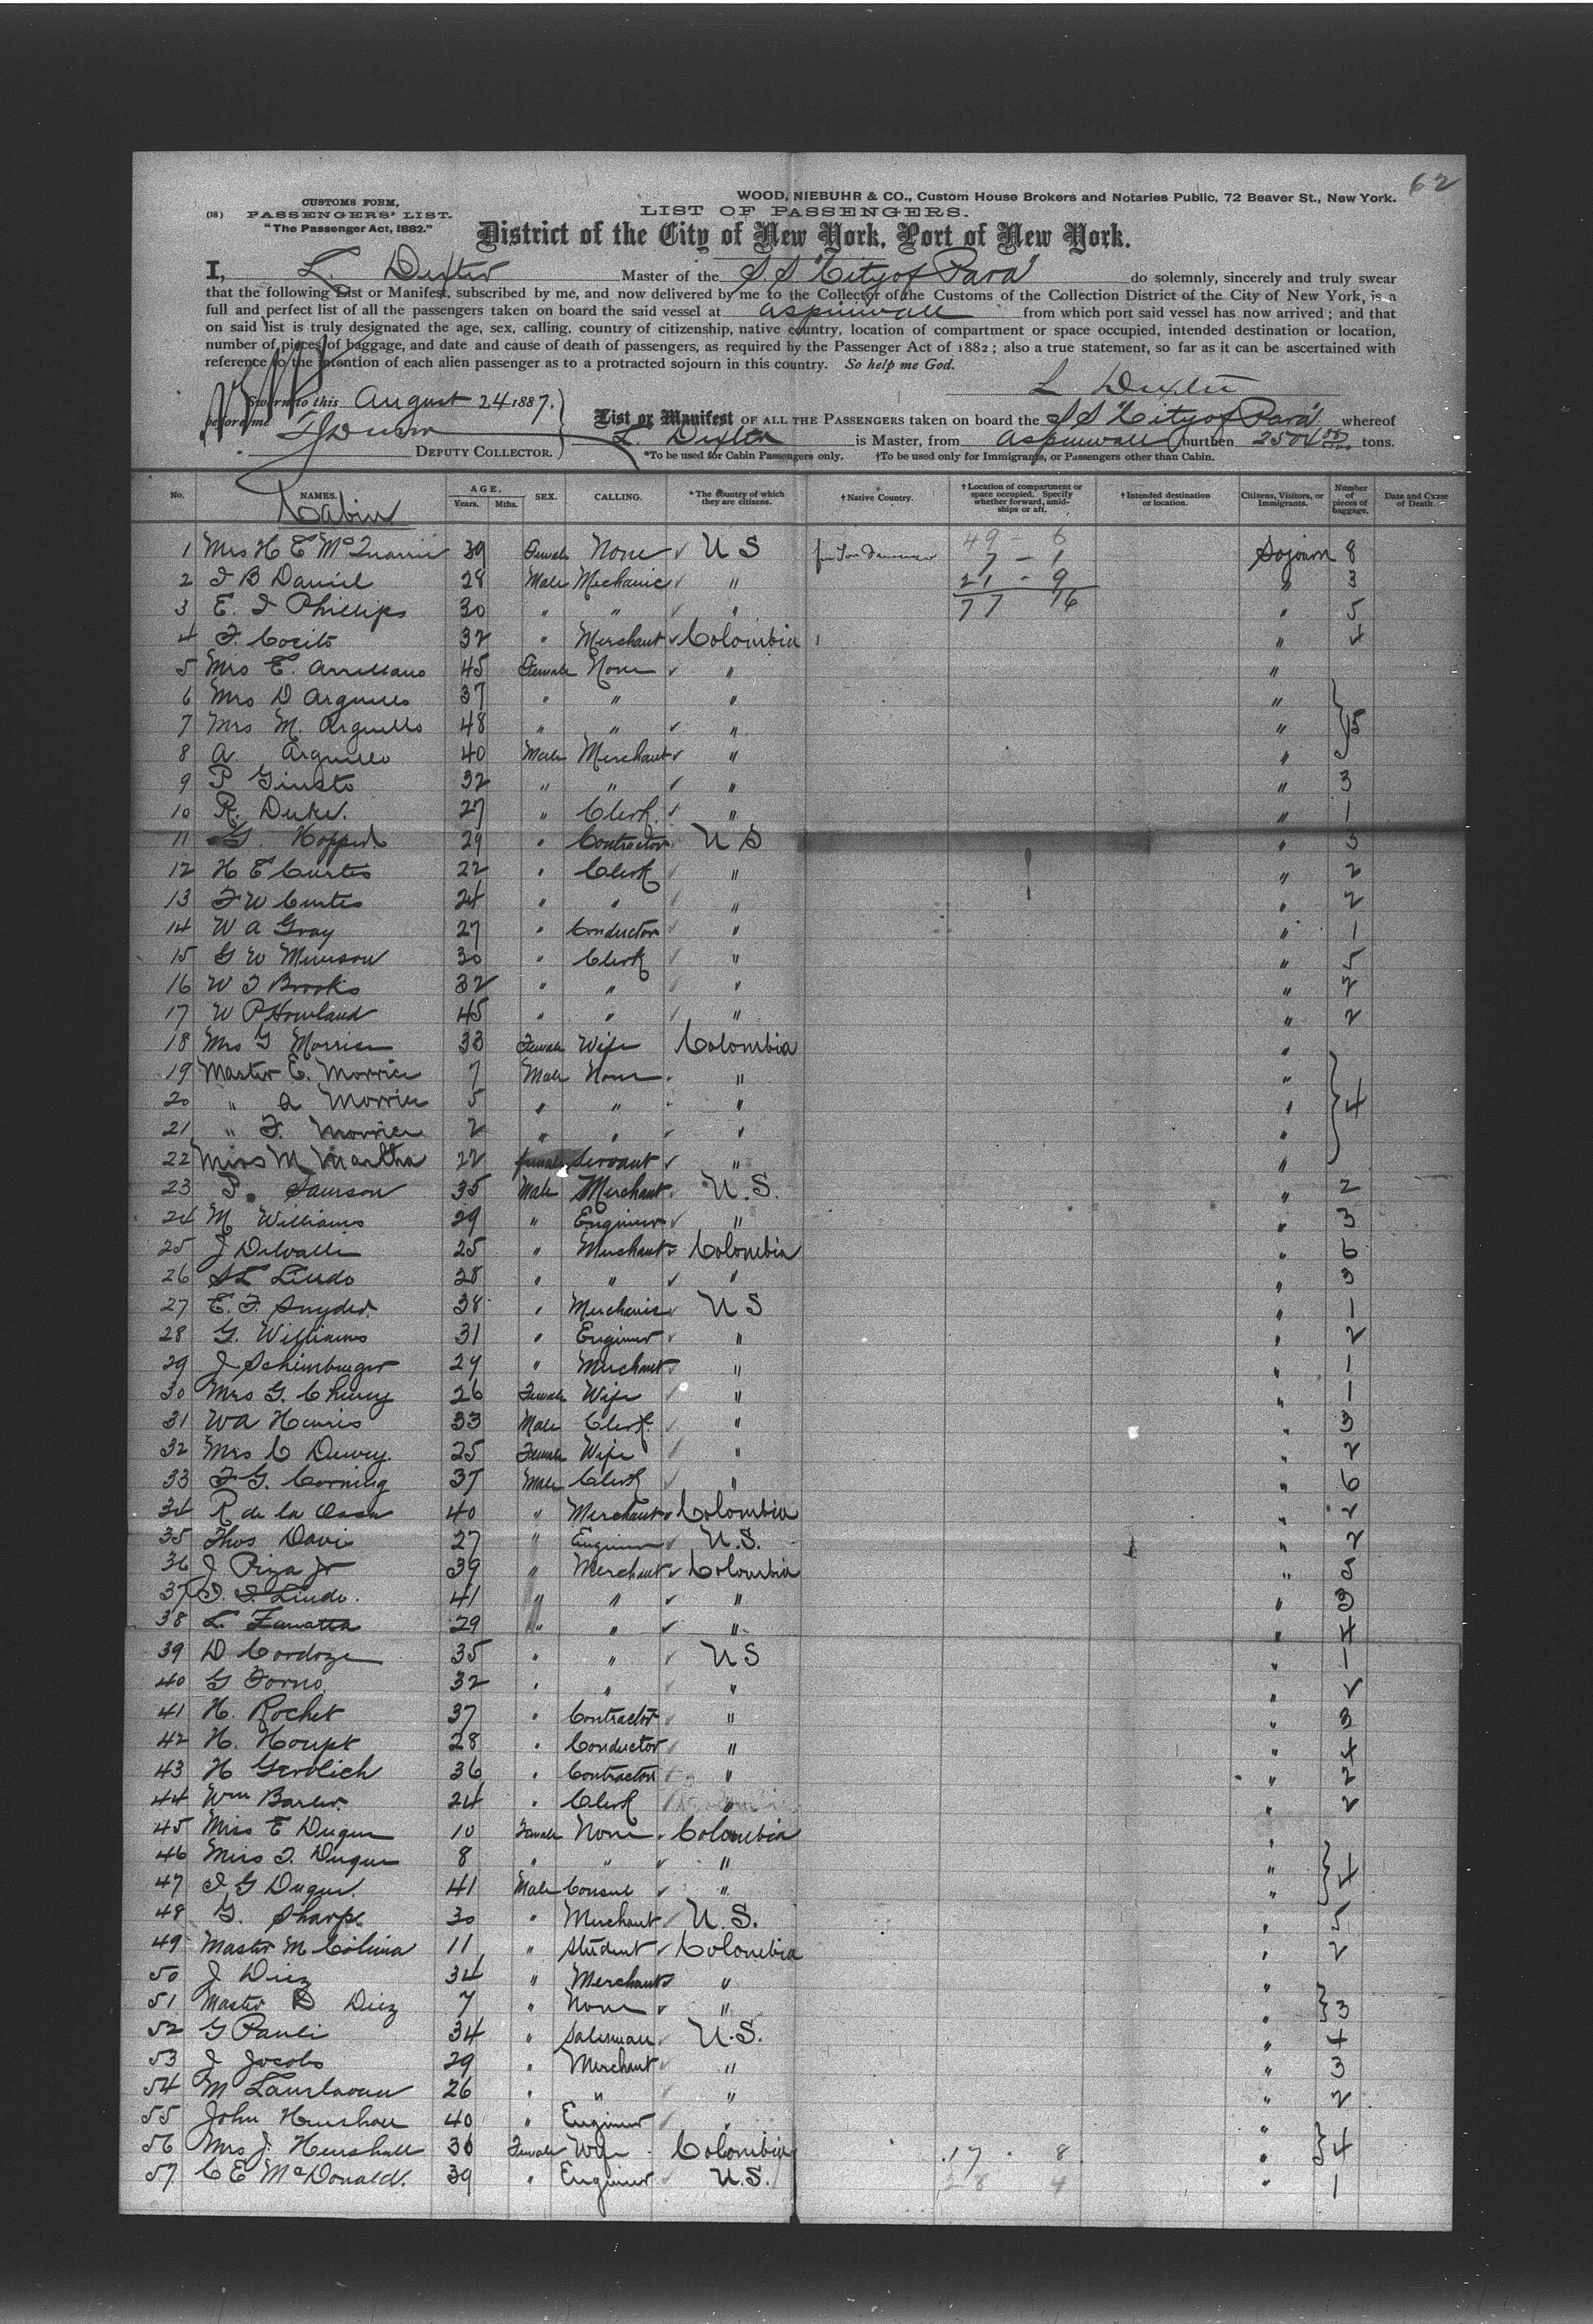 62
WOOD, NIEBUHR & CO., Custom House Brokers and Notaries Public, 72 Beaver St., New York.
CUSTOMS FORM,
(18) PASSENGERS' LIST.
"The Passenger Act, 1882."
LIST OF PASSENGERS.
District of the City of New York, Port of New York.
I, L. Dexter Master of the S.S "City of Para" do solemnly, sincerely and truly swear
that the following List or Manifest, subscribed by me, and now delivered by me to the Collector of the Customs of the Collection District of the City of New York, is a
full and perfect list of all the passengers taken on board the said vessel at Aspinwall from which port said vessel has now arrived; and that
on said list is truly designated the age, sex, calling, country of citizenship, native country, location of compartment or space occupied, intended destination or location,
number of pieces of baggage, and date and cause of death of passengers, as required by the Passenger Act of 1882; also a true statement, so far as it can be ascertained with
reference to the intention of each alien passenger as to a protracted sojourn in this country. So help me God.
L Dexter
Sworn to this August 24 1887.
before me
DEPUTY COLLECTOR.
List or Manifest OF ALL THE PASSENGERS taken on board the S S "City of Para" whereof
L. Dexter is Master, from Aspinwall burthen 2504 tons.
*To be used for Cabin Passengers only. †To be used only for Immigrants, or Passengers other than Cabin.
No. NAMES. AGE. Years. Mths. SEX. CALLING. *The country of which they are citizens. †Native Country. †Location of compartment or space occupied. Specify whether forward, amidships or aft. †Intended destination or location. Citizens, Visitors, or Immigrants. Number of pieces of baggage. Date and Cause of Death.
Cabin
49 - 6
1 Mrs H E 39 Female None U S 7 - 1 Sojourn 8
2 J B Daniel 28 Male Mechanic " 21 - 9 " 3
3 E. J Phillips 30 " " " 77 16 " 5
4 F. 32 " Merchant Colombia " 4
5 Mrs E. Arrellano 45 Female None " "
6 Mrs D Arguello 37 " " " "
7 Mrs M. Arguello 48 " " " " 15
8 A. Arguello 40 Male Merchant " "
9 P Giusto 32 " " " " 3
10 R. Duke. 27 " Clerk. " " 1
11 G. Hopper 29 " Contractor U S " 3
12 H E Curtis 22 " Clerk " " 2
13 F W Curtis 24 " " " " 2
14 W A Gray 27 " Conductor " " 1
15 G W 30 " Clerk " " 5
16 W J Brooks 32 " " " " 2
17 W P Howland 45 " " " " 2
18 Mrs G Morrice 33 Female Wife Colombia "
19 Master E. Morrice 7 Male None " "
20 " A Morrice 5 " " " " 4
21 " F. Morrice 2 " " " "
22 Miss M Martha 22 female Servant " "
23 P. Samson 35 Male Merchant U.S. " 2
24 M Williams 29 " Engineer " " 3
25 J Delvalle 25 " Merchant Colombia " 6
26 S L Lindo 28 " " " " 3
27 E. F. Snyder. 38 " Mechanic U S " 1
28 G. Williams 31 " Engineer " " 2
29 J Schimburger 24 " Merchant " " 1
30 Mrs G. Cheney 26 Female Wife " " 1
31 W A Harris 33 Male Clerk. " " 3
32 Mrs C Dewey. 25 Female Wife " " 2
33 F G. Corning 37 Male Clerk " " 6
34 R de la Ossa 40 " Merchant Colombia " 2
35 Thos Davis 27 " Engineer U.S. " 2
36 J Piza Jr 39 " Merchant Colombia " 5
37 J. J. Lindo. 41 " " " " 3
38 L. Zanatta 29 " " " " 4
39 D Cordoze 35 " " U S " 1
40 G Forno 32 " " " " 2
41 H. Rochet 37 " Contractor " " 3
42 H. Houpt 28 " Conductor " " 4
43 H Gerolich 36 " Contractor " " 2
44 Wm Barler. 24 " Clerk " " 2
45 Miss E Duque 10 Female None Colombia "
46 Miss J. Duque 8 " " " " 4
47 J G Duque. 41 Male Consul " "
48 G. Sharp 30 " Merchant U.S. " 5
49 Master M Colina 11 " Student Colombia " 2
50 J Diez 34 " Merchant " "
51 Master D Diez 7 " None " " 3
52 G Pauli 34 " Salesman U.S. " 4
53 J Jacobs 29 " Merchant " " 3
54 M 26 " " " " 2
55 John Henshall 40 " Engineer " "
56 Mrs J. Henshall 36 Female Wife Colombia 17 - 8 " 4
57 C E McDonald. 39 " Engineer U.S. 28 4 " 1